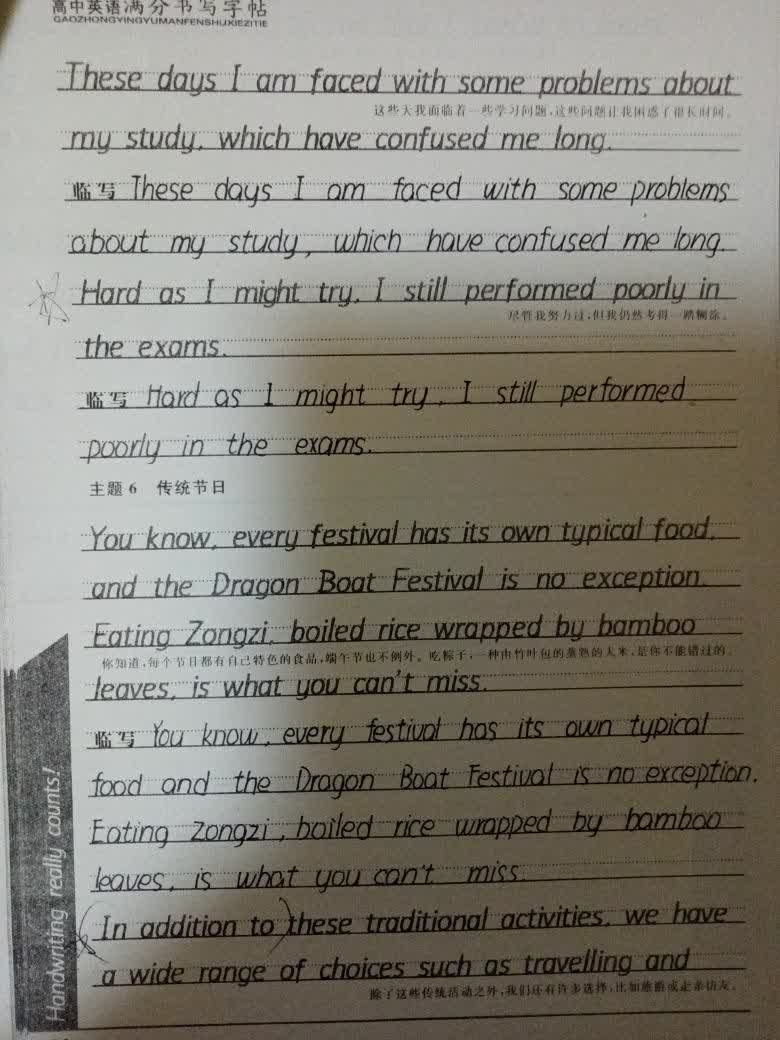 高中英语满分书写字帖
GAOZHONGYINGYUMANFENSHUXIEZITIE
These days I am faced with some problems about
这些天我面临着一些学习问题,这些问题让我困惑了很长时间。
my study, which have confused me long.
临写 These days I am faced with some problems
about my study, which have confused me long.
Hard as I might try, I still performed poorly in
尽管我努力过,但我仍然考得一踏糊涂。
the exams.
临写 Hard as I might try, I still performed
poorly in the exams.
主题6 传统节日
You know, every festival has its own typical food,
and the Dragon Boat Festival is no exception.
Eating Zongzi, boiled rice wrapped by bamboo
你知道,每个节日都有自己特色的食品,端午节也不例外。吃粽子,一种由竹叶包的蒸熟的大米,是你不能错过的。
leaves, is what you can't miss.
临写 You know, every festival has its own typical
food and the Dragon Boat Festival is no exception.
Eating Zongzi, boiled rice wrapped by bamboo
leaves, is what you can't miss.
In addition to these traditional activities, we have
a wide range of choices such as travelling and
除了这些传统活动之外,我们还有许多选择,比如旅游或走亲访友。
Handwriting really counts!